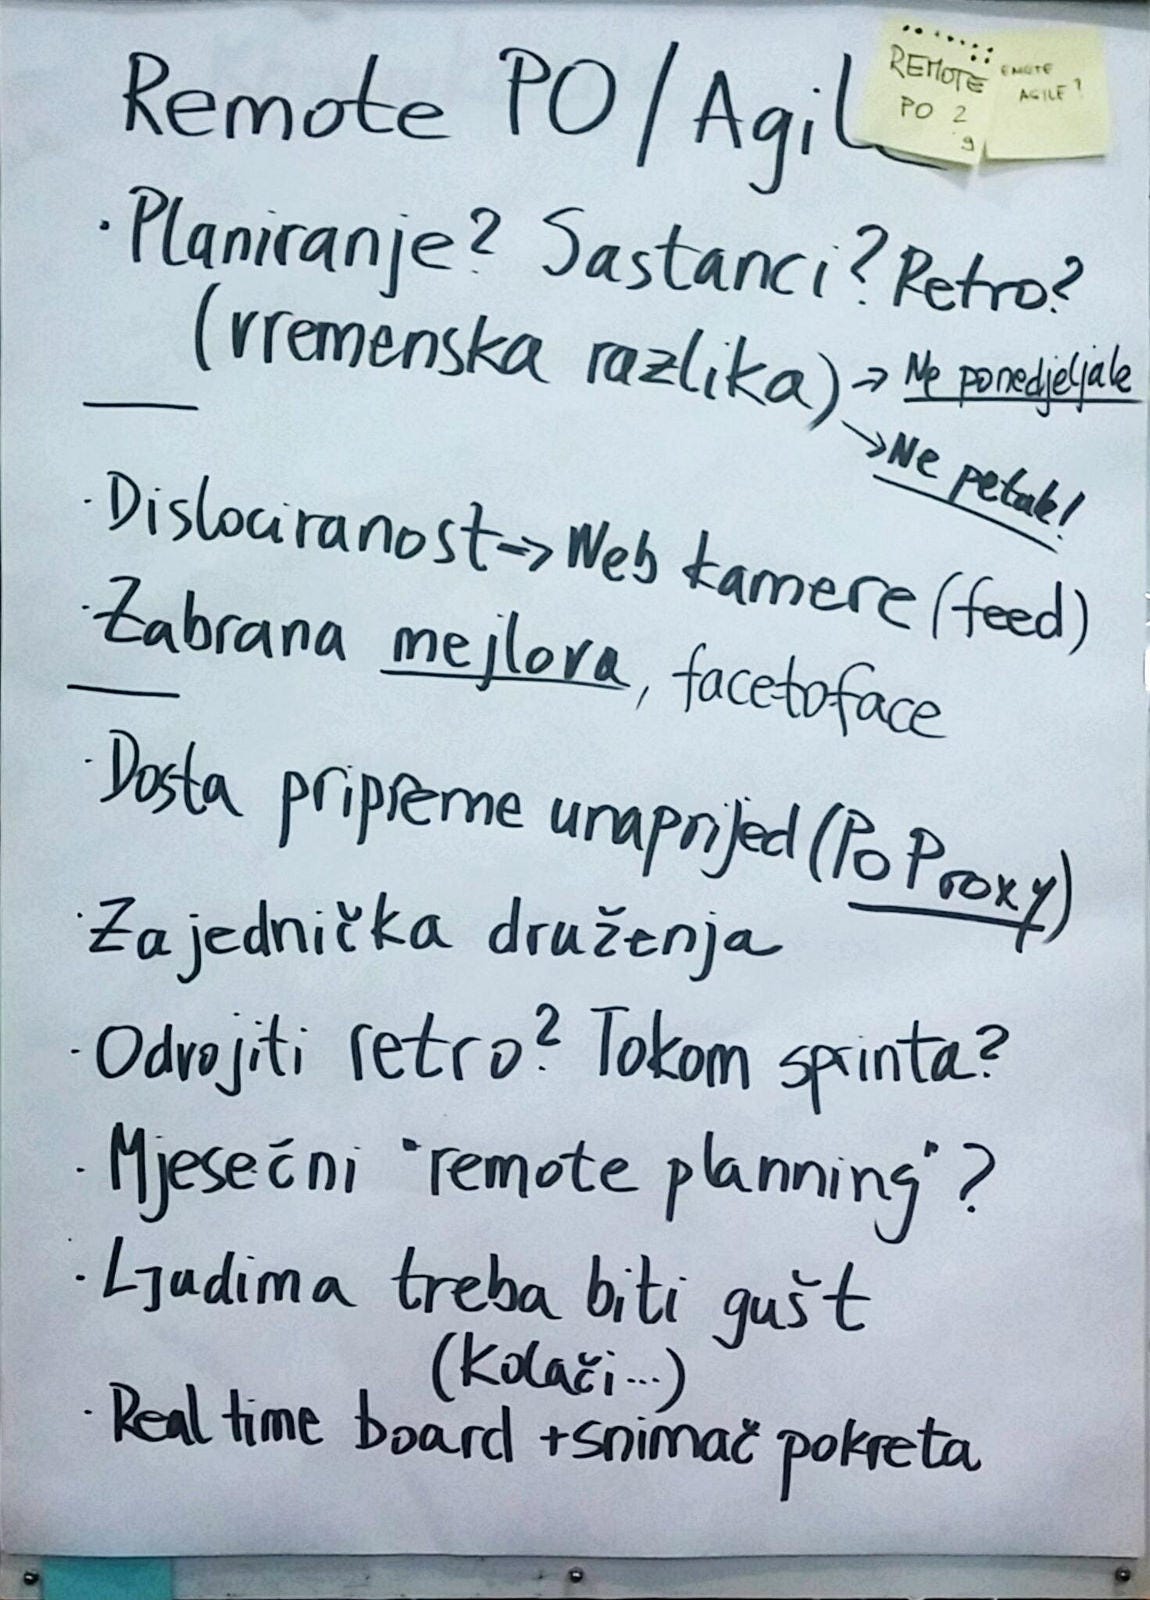 Remote PO/Agil
REMOTE
PO ?
9
EMOTE
AGILE?
· Planiranje? Sastanci? Retro?
(vremenska razlika) → Ne ponedjeljak
→ Ne petak!
· Dislociranost => Web kamere (feed)
· Zabrana mejlova, facetoface
· Dosta pripreme unaprijed (PO Proxy)
· Zajednička druženja
· Odvojiti retro? Tokom sprinta?
· Mjesečni "remote planning"?
· Ljudima treba biti gušt
(Kolači...)
· Real time board + snimač pokreta